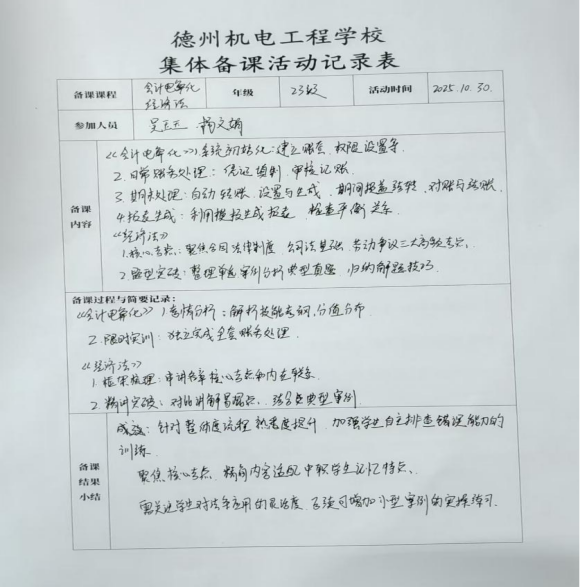 德州机电工程学校
集体备课活动记录表
备课课程 会计电算化 经济法 年级 23级 活动时间 2025.10.30.
参加人员 杨文娟
备课内容
《会计电算化》1.系统初始化:建立账套、权限设置等.
2.日常账务处理:凭证填制、审核记账.
3.期末处理:自动转账、设置与生成、期间损益结转、对账与结账.
4.报表生成:利用模板生成报表、检查平衡关系.
《经济法》
1.核心考点:聚焦合同法律制度、公司法基础、劳动争议三大高频考点.
2.题型突破:整理单选、案例分析典型真题、归纳解题技巧.
备课过程与简要记录:
《会计电算化》1.考情分析:解析技能考纲,分值分布
2.限时实训:独立完成全套账务处理.
《经济法》
1.框架梳理:串讲各章核心考点和内在联系
2.精讲突破:对比讲解易错点、结合典型案例.
备课结果小结
成效:针对整体流程熟悉度提升,加强学生自主排查错误能力的
训练.
聚焦核心考点、精简内容适配中职学生记忆特点、
需关注学生对法条应用的灵活度、后续可增加小型案例的实操练习.